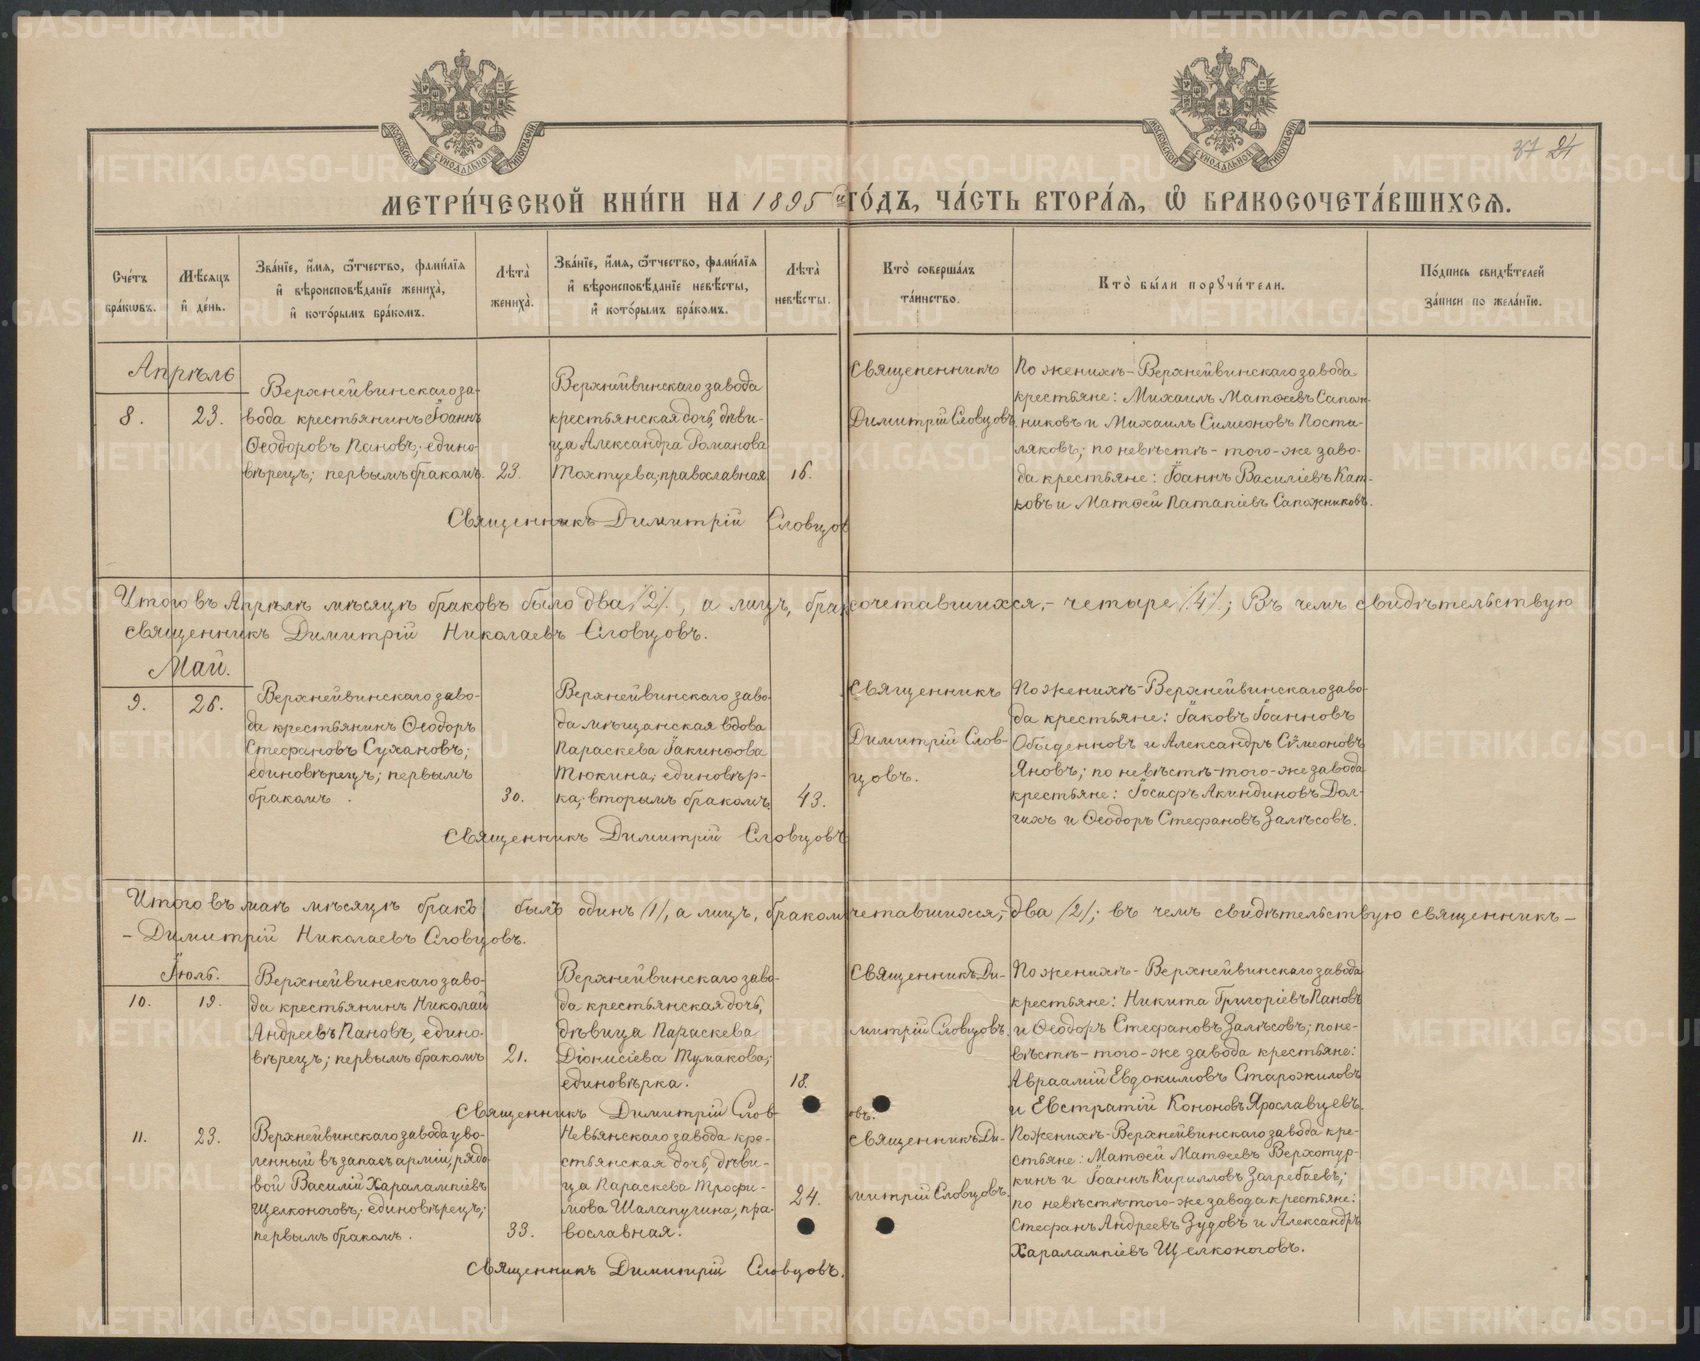 МЕТРИ́ЧЕСКОЙ КНИ́ГИ НА 1895й ГО́ДЪ, ЧА́СТЬ ВТОРА́Я, Ѡ БРАКОСОЧЕТА́ВШИХСЯ.
37 24
Сче́тъ бра́кѡвъ.
Мѣ́сяцъ и҆ де́нь.
Зва́нїе, и҆́мя, ѻ҆́тчество, фами́лїя и҆ вѣроисповѣ́данїе жениха̀, и҆ кото́рымъ бра́комъ.
Лѣта̀ жениха̀.
Зва́нїе, и҆́мя, ѻ҆́тчество, фами́лїя и҆ вѣроисповѣ́данїе невѣ́сты, и҆ кото́рымъ бра́комъ.
Лѣта̀ невѣ́сты.
Кто̀ соверша́лъ та́инство.
Кто̀ бы́ли порꙋчи́тели.
По́дпись свидѣ́телей за́писи по жела́нїю.
Апрѣль
8.
23.
Верхнейвинскаго за-
вода крестьянинъ Іоаннъ
Ѳеодоровъ Пановъ; едино-
вѣрецъ; первымъ бракомъ.
23.
Верхнейвинскаго завода
крестьянская дочь, дѣви-
ца Александра Романова
Тохтуева, православная
16.
Священникъ
Димитрій Словцовъ.
По женихѣ - Верхнейвинскаго завода
крестьяне: Михаилъ Матѳеевъ Сапож-
никовъ и Михаилъ Симеоновъ Поста-
ляковъ; по невѣстѣ - того-же заво-
да крестьяне: Іоаннъ Василіевъ Кат-
ковъ и Матѳей Патапіевъ Сапожниковъ.
Священникъ Димитрій Словцовъ
Итого въ Апрѣлѣ мѣсяцѣ браковъ было два /2/., а лицъ, бракосочетавшихся, - четыре /4/.; Въ чемъ свидѣтельствую
священникъ Димитрій Николаевъ Словцовъ.
Май.
9.
26.
Верхнейвинскаго заво-
да крестьянинъ Ѳеодоръ
Стефановъ Сухановъ;
единовѣрецъ; первымъ
бракомъ.
30.
Верхнейвинскаго заво-
да мѣщанская вдова
Параскева Іакинѳова
Тюкина; единовѣр-
ка; вторымъ бракомъ
43.
Священникъ
Димитрій Слов-
цовъ.
По женихѣ - Верхнейвинскаго заво-
да крестьяне: Іаковъ Іоанновъ
Обыденновъ и Александръ Сѵмеоновъ
Яновъ; по невѣстѣ - того-же завода
крестьяне: Іосифъ Акиндиновъ Дол-
гихъ и Ѳеодоръ Стефановъ Залѣсовъ.
Священникъ Димитрій Словцовъ
Итого въ маѣ мѣсяцѣ бракъ былъ одинъ /1/, а лицъ, бракомъ четавшихся, два /2/; въ чемъ свидѣтельствую священникъ -
- Димитрій Николаевъ Словцовъ.
Іюль.
10.
19.
Верхнейвинскаго заво-
да крестьянинъ Николай
Андреевъ Пановъ, едино-
вѣрецъ; первымъ бракомъ
21.
Верхнейвинскаго заво-
да крестьянская дочь,
дѣвица Параскева
Діонисіева Тумакова;
единовѣрка.
18.
Священникъ Ди-
митрій Словцовъ
По женихѣ - Верхнейвинскаго завода
крестьяне: Никита Григоріевъ Пановъ
и Ѳеодоръ Стефановъ Залѣсовъ; по не-
вѣстѣ - того-же завода крестьяне:
Авраамій Евдокимовъ Старожиловъ
и Евстратій Кононовъ Ярославцевъ.
Священникъ Димитрій Слов-
овъ.
11.
23.
Верхнейвинскаго завода уво-
ленный въ запасъ арміи, рядо-
вой Василій Харалампіевъ
Щелконоговъ; единовѣрецъ;
первымъ бракомъ.
33.
Невьянскаго завода кре-
стьянская дочь, дѣви-
ца Параскева Трофи-
мова Шалапугина, пра-
вославная.
24.
Священникъ Ди-
митрій Словцовъ.
По женихѣ - Верхнейвинскаго завода кре-
стьяне: Матѳей Матѳеевъ Верхотур-
кинъ и Іоаннъ Кирилловъ Загребаевъ;
по невѣстѣ того-же завода крестьяне:
Стефанъ Андреевъ Зудовъ и Александръ
Харалампіевъ Щелконоговъ.
Священникъ Димитрій Словцовъ.